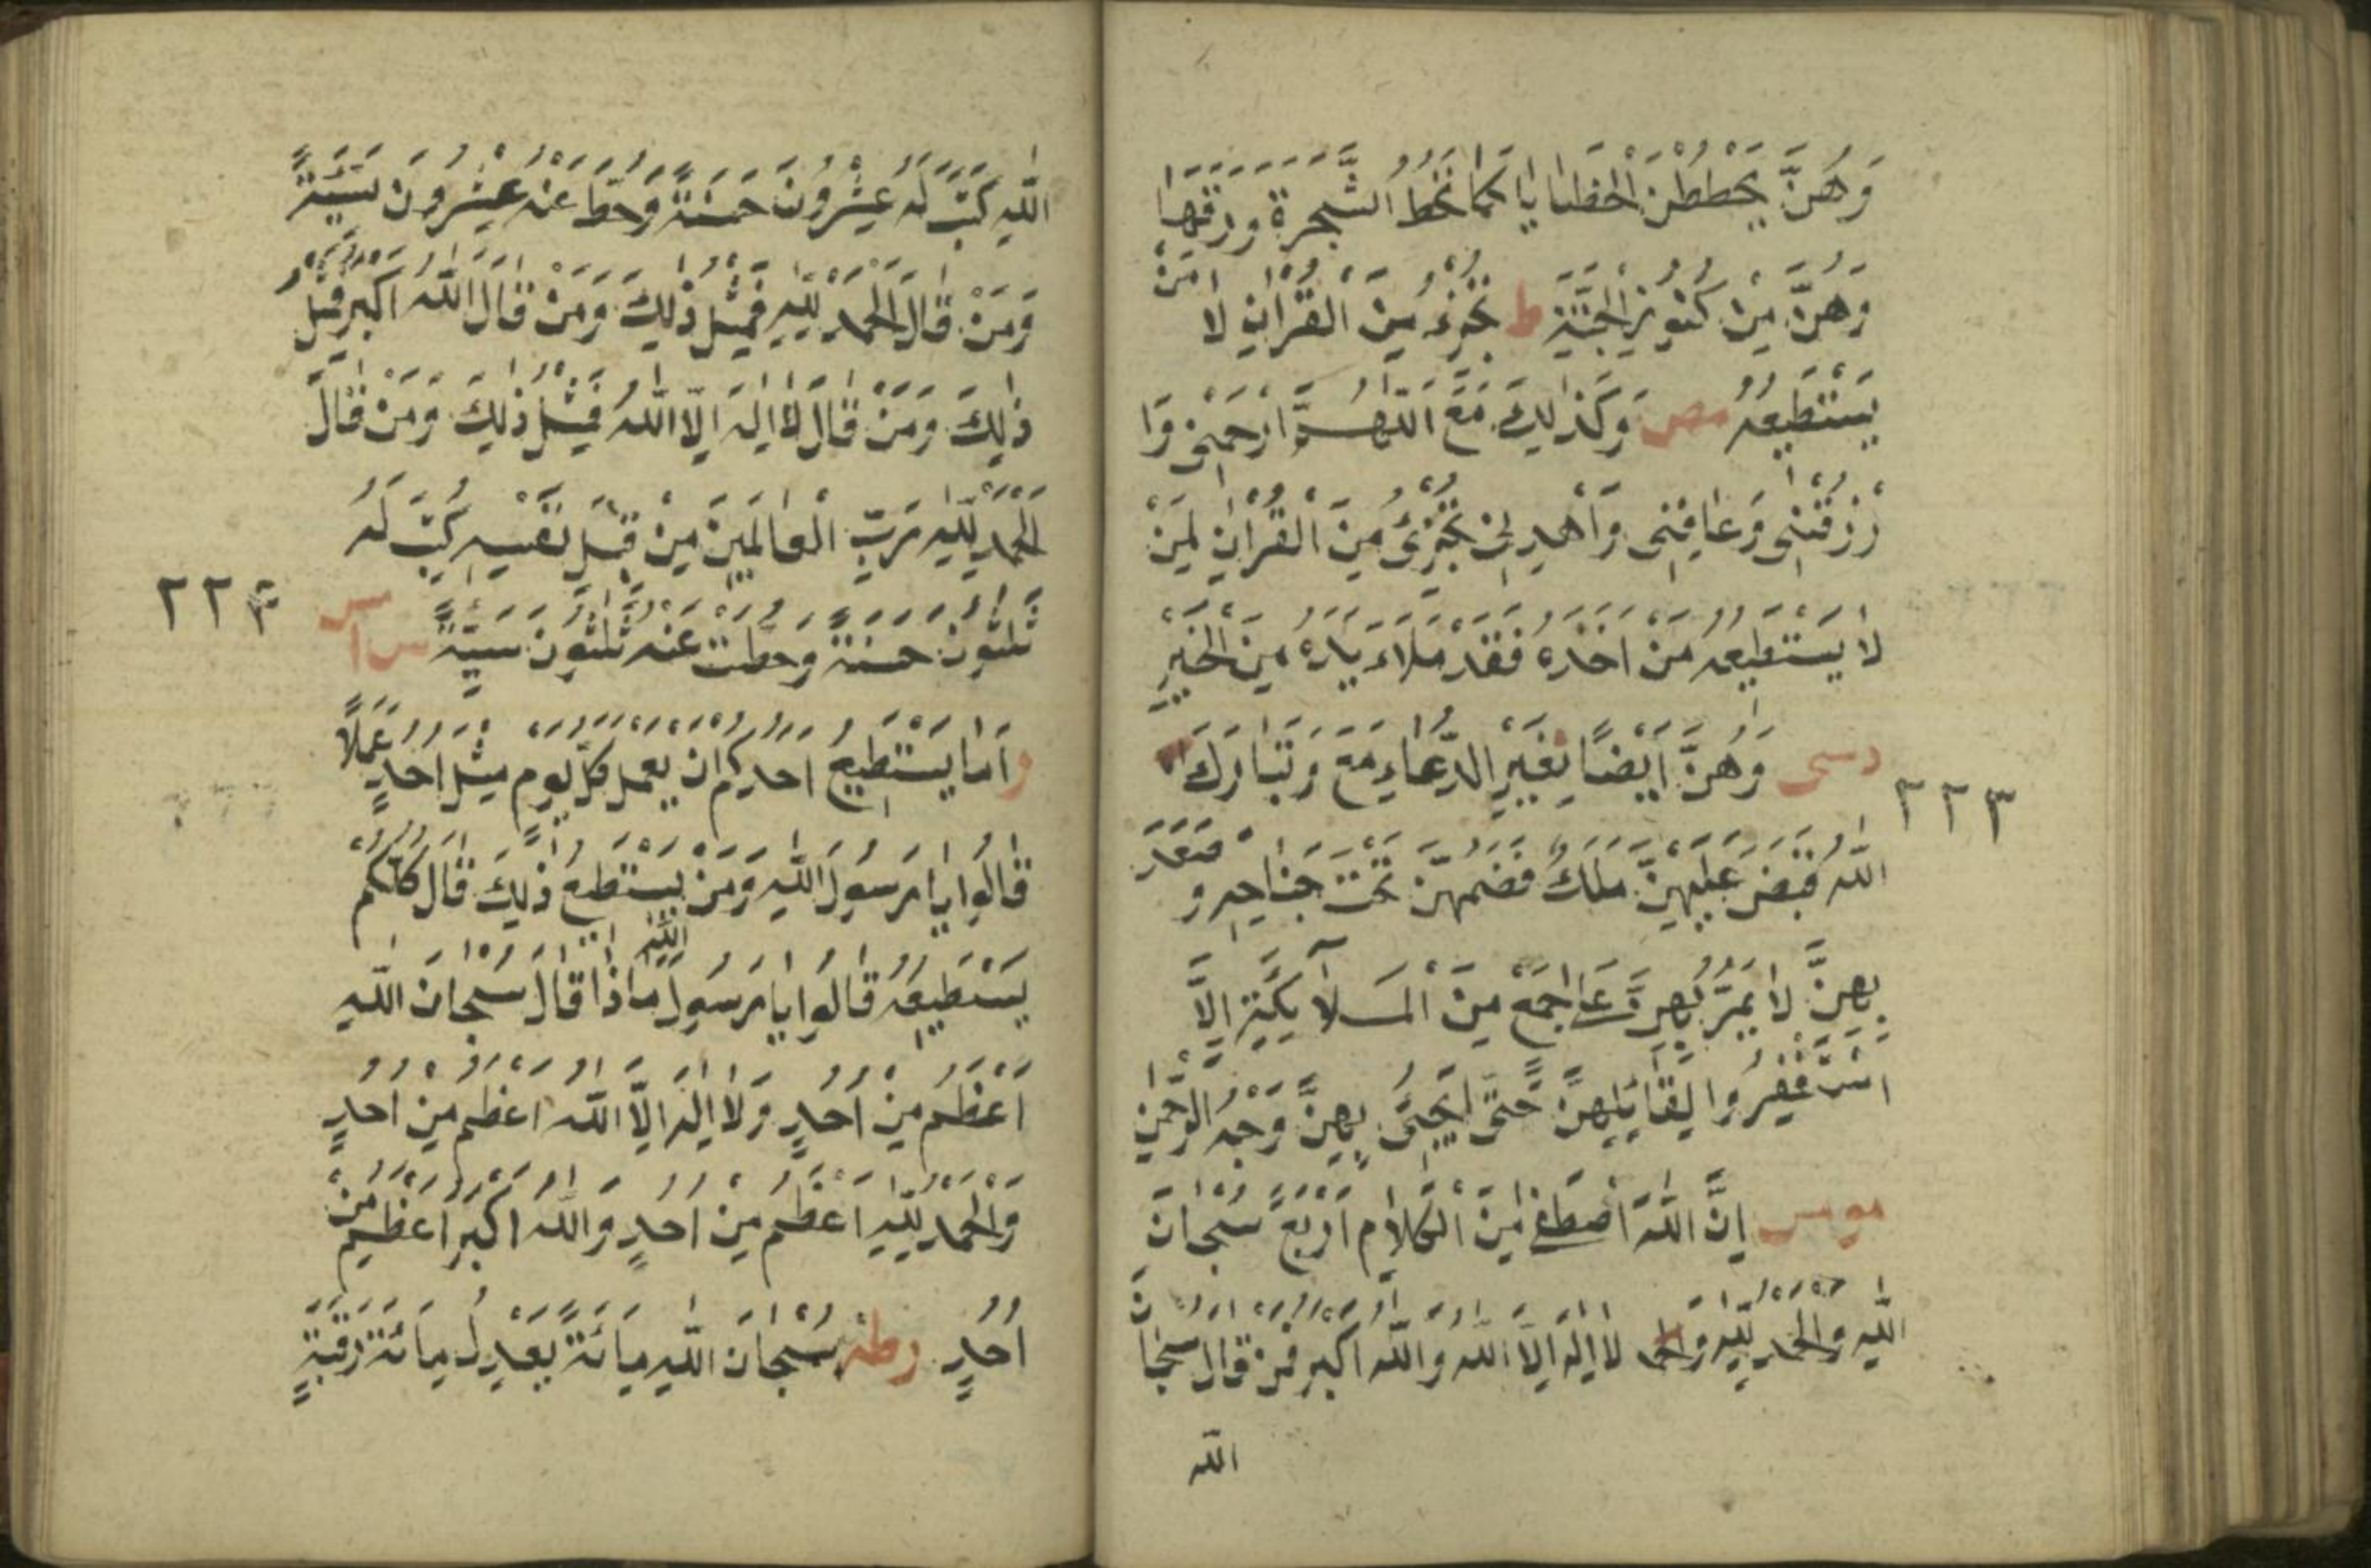 وَهُنَّ يَحْطُطْنَ الْخَطَايَا كَمَا تَحُطُّ الشَّجَرَةُ وَرَقَهَا
وَهُنَّ مِنْ كُنُوزِ الْجَنَّةِ ط تُجْزِئُ مِنَ الْقُرْاٰنِ لَا مَنْ
يَسْتَطِيعُهُ مص وَكَذٰلِكَ مَعَ اللّٰهُمَّ ارْحَمْنِي وَا
رْزُقْنِي وَعَافِنِي وَاَهْدِنِي تُجْزِئُ مِنَ الْقُرْاٰنِ لِمَنْ
لَا يَسْتَطِيعُهُ مَنْ اَخَذَهُ فَقَدْ مَلَاءَ يَدَهُ مِنَ الْخَيْرِ
د سى وَهُنَّ اَيْضًا بِغَيْرِ الدُّعَاءِ مَعَ وَتَبَارَكَ
٢٢٣
اللّٰهُ قَبَضَ عَلَيْهِنَّ مَلَكٌ فَضَمَّهُنَّ تَحْتَ جَنَاحِهِ وَ صَعَدَ
بِهِنَّ لَا يَمُرُّ بِهِنَّ عَلٰى جَمْعٍ مِنَ الْمَلَآئِكَةِ اِلَّا
اسْتَغْفِرُوا لِقَائِلِهِنَّ حَتّٰى يُحَيّٰى بِهِنَّ وَجْهُ الرَّحْمٰنِ
مو مس اِنَّ اللّٰهَ اصْطَفٰى مِنَ الْكَلَامِ اَرْبَعً سُبْحَانَ
اللّٰهِ وَالْحَمْدُ لِلّٰهِ وَالحمد لَا اِلٰهَ اِلَّا اللّٰهُ وَاللّٰهُ اَكْبَرُ فَمَنْ قَالَ سُبْحَانَ
الله
اللّٰهِ كَتَبَ لَهُ عِشْرُونَ حَسَنَةً وَحُطَّ عَنْهُ عِشْرُونَ سَيِّئَةً
وَمَنْ قَالَ الْحَمْدُ لِلّٰهِ فَمِثْلُ ذٰلِكَ وَمَنْ قَالَ اللّٰهُ اَكْبَرُ فَمِثْلُ
ذٰلِكَ وَمَنْ قَالَ لَا اِلٰهَ اِلَّا اللّٰهُ فَمِثْلُ ذٰلِكَ وَمَنْ قَالَ
الْحَمْدُ لِلّٰهِ رَبِّ الْعَالَمِينَ مِنْ قِبَلِ نَفْسِهِ كُتِبَ لَهُ
ثَلٰثُونَ حَسَنَةً وَحُطَّتْ عَنْهُ ثَلٰثُونَ سَيِّئَةً س ا مس
٢٢٤
وَاَمَا يَسْتَطِيعُ اَحَدُكُمْ اَنْ يَعْمَلَ كُلَّ يَوْمٍ مِثْلَ اُحُدٍ عَمَلًا
قَالُوا يَا رَسُولَ اللّٰهِ وَمَنْ يَسْتَطِيعُ ذٰلِكَ قَالَ كُلُّكُمْ
يَسْتَطِيعُهُ قَالُوا يَا رَسُولَ اللّٰهِ مَاذَا قَالَ سُبْحَانَ اللّٰهِ
اَعْظَمُ مِنْ اُحُدٍ وَلَا اِلٰهَ اِلَّا اللّٰهُ اَعْظَمُ مِنْ اُحُدٍ
وَالْحَمْدُ لِلّٰهِ اَعْظَمُ مِنْ اُحُدٍ وَاللّٰهُ اَكْبَرُ اَعْظَمُ مِنْ
اُحُدٍ ر ط سُبْحَانَ اللّٰهِ مِائَةً يَعْدِلُ مِائَةَ رَقَبَةٍ